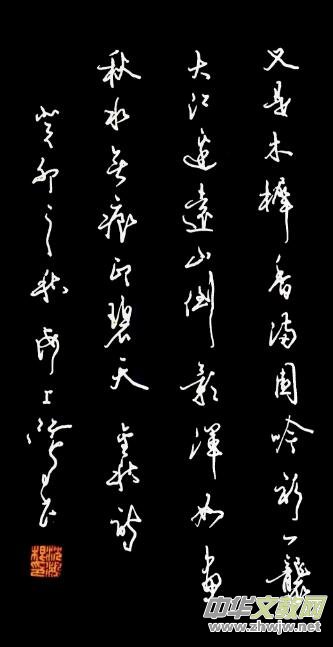 又是木樨香满園吟衫一襲
大江邊遠山倒影浑如畫
秋水無痕印碧天 金秋
癸卯之秋海上
中华文教网
www.zhwjw.net